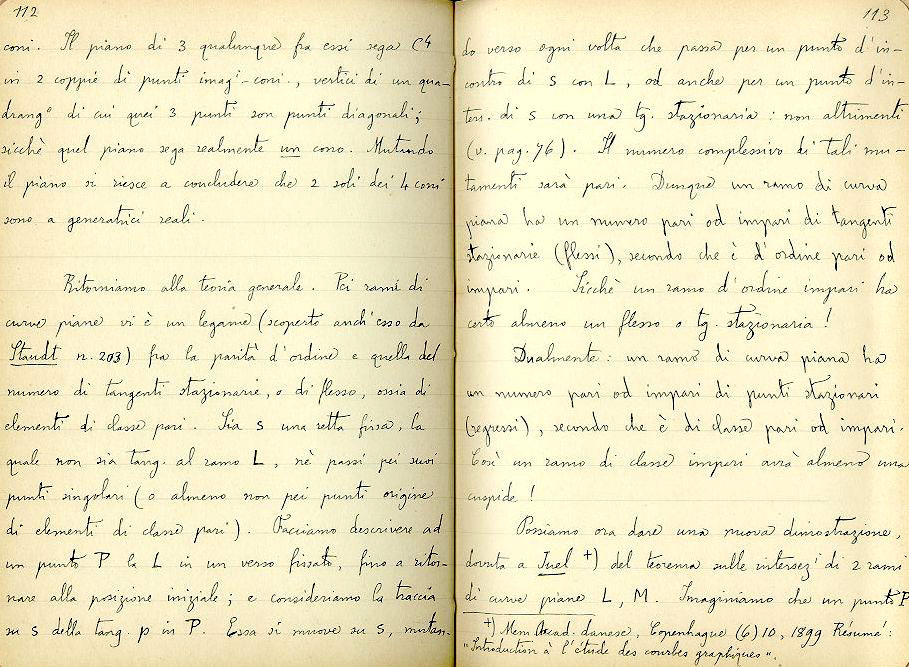 112
coni. Il piano di 3 qualunque fra essi sega C⁴
in 2 coppie di punti imag.-coni., vertici di un qua-
drang° di cui quei 3 punti son punti diagonali;
sicchè quel piano sega realmente un cono. Mutando
il piano si riesce a concludere che 2 soli dei 4 coni
sono a generatrici reali.
Ritorniamo alla teoria generale. Pei rami di
curve piane vi è un legame (scoperto anch'esso da
Staudt n. 203) fra la parità d'ordine e quella del
numero di tangenti stazionarie, o di flesso, ossia di
elementi di classe pari. Sia s una retta fissa, la
quale non sia tang. al ramo L, nè passi pei suoi
punti singolari (o almeno non pei punti origine
di elementi di classe pari). Facciamo descrivere ad
un punto P la L in un verso fissato, fino a ritor-
nare alla posizione iniziale; e consideriamo la traccia
su s della tang. p in P. Essa si muove su s, mutan-
113
do verso ogni volta che passa per un punto d'in-
contro di s con L, od anche per un punto d'in-
ters. di s con una tg. stazionaria: non altrimenti
(v. pag. 76). Il numero complessivo di tali mu-
tamenti sarà pari. Dunque un ramo di curva
piana ha un numero pari od impari di tangenti
stazionarie (flessi), secondo che è d'ordine pari od
impari. Sicchè un ramo d'ordine impari ha
certo almeno un flesso o tg. stazionaria!
Dualmente: un ramo di curva piana ha
un numero pari od impari di punti stazionari
(regressi), secondo che è di classe pari od impari.
Così un ramo di classe impari avrà almeno una
cuspide!
Possiamo ora dare una nuova dimostrazione,
dovuta a Juel +) del teorema sulle intersez¹ di 2 rami
di curve piane L, M. Imaginiamo che un punto P
+) Mem. Acad. danese, Copenhague (6) 10, 1899 Résumé:
"Introduction à l'étude des courbes graphiques".